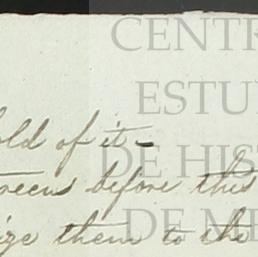 CENTR
ESTU
DE HIS
DE ME
old of it –
reen before this
ize them to the